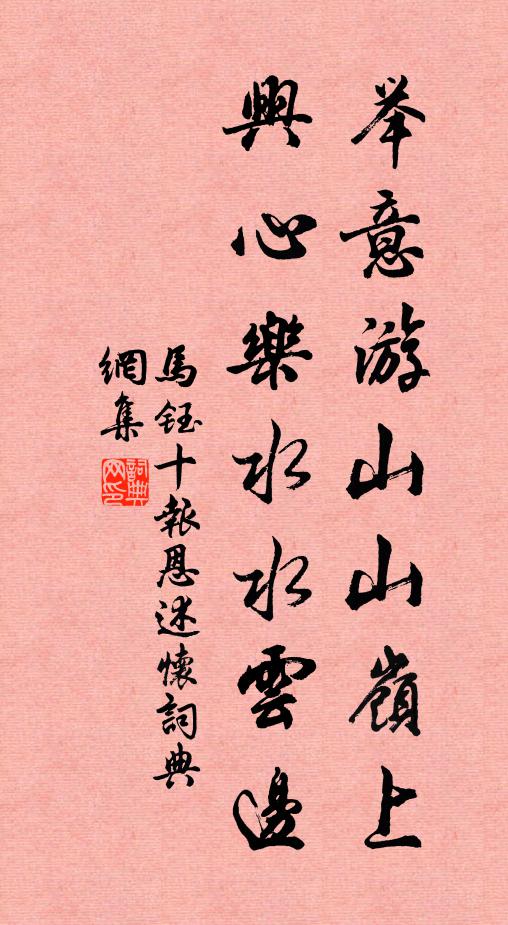 举意游山山嶺上
興心樂水水雲邊
馬鈺十報恩述懷詞典
網集
詞典網印